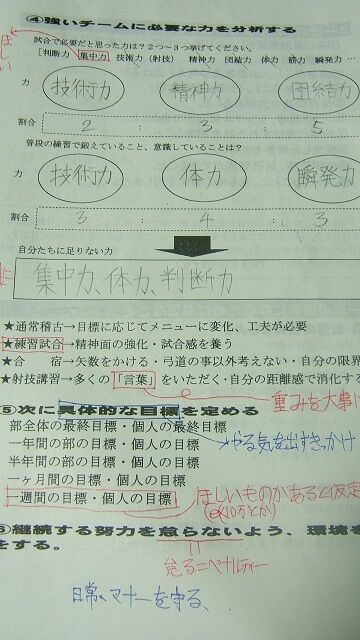 ④強いチームに必要な力を分析する
試合で必要だと思った力は？２つ～３つ挙げてください。
「判断力 集中力 技術力（射技） 精神力 団結力 体力 筋力 瞬発力 …
ほしい
力 技術力 精神力 団結力
割合 2 : 3 : 5
普段の練習で鍛えていること、意識していることは？
力 技術力 体力 瞬発力
割合 3 : 4 : 3
自分たちに足りない力
集中力、体力、判断力
★通常稽古→目標に応じてメニューに変化、工夫が必要
★練習試合→精神面の強化・試合感を養う
★合 宿→矢数をかける・弓道の事以外考えない・自分の限界
★射技講習→多くの「言葉」をいただく・自分の距離感で消化す
重みを大事に
⑤次に具体的な目標を定める
部全体の最終目標・個人の最終目標
→やる気を出すきっかけ
一年間の部の目標・個人の目標
半年間の部の目標・個人の目標
一ヶ月間の目標・個人の目標
一週間の目標・個人の目標
ほしいものがあると仮定
(10万とか)
継続する努力を怠らないよう、環境を
をする。
怠る=ペナルティー
日常、マナーを守る、